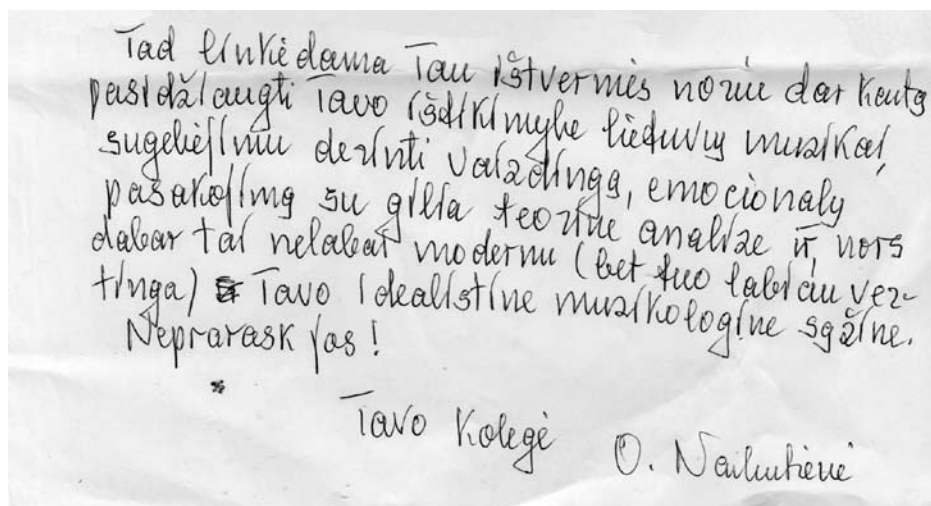 Tad linkėdama Tau ištvermės noriu dar kartą
pasidžiaugti Tavo ištikimybe lietuvių muzikai,
sugebėjimu derinti vaizdingą, emocionalų
pasakojimą su gilia teorine analize ir, nors
dabar tai nelabai modernu (bet tuo labiau ver-
tinga) Tavo idealistine muzikologine sąžine.
Neprarask jos!
Tavo Kolegė
O. Narbutienė